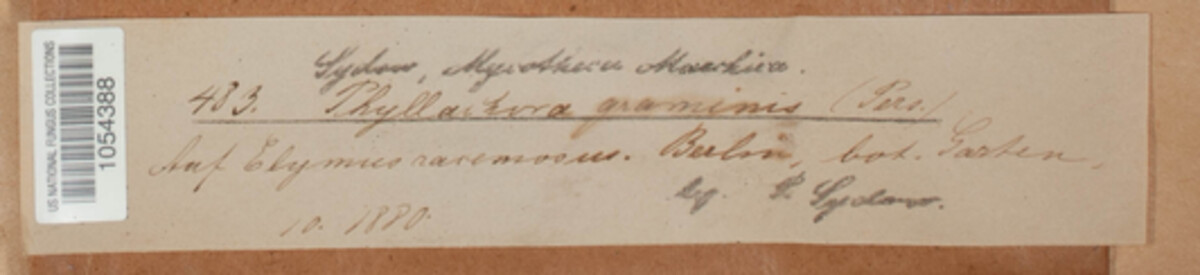 US NATIONAL FUNGUS COLLECTIONS
1054388
Sydow, Mycotheca Marchica.
483. Phyllachora graminis (Pers.)
Auf Elymus racemosus. Berlin, bot. Garten,
leg. P. Sydow.
10. 1880